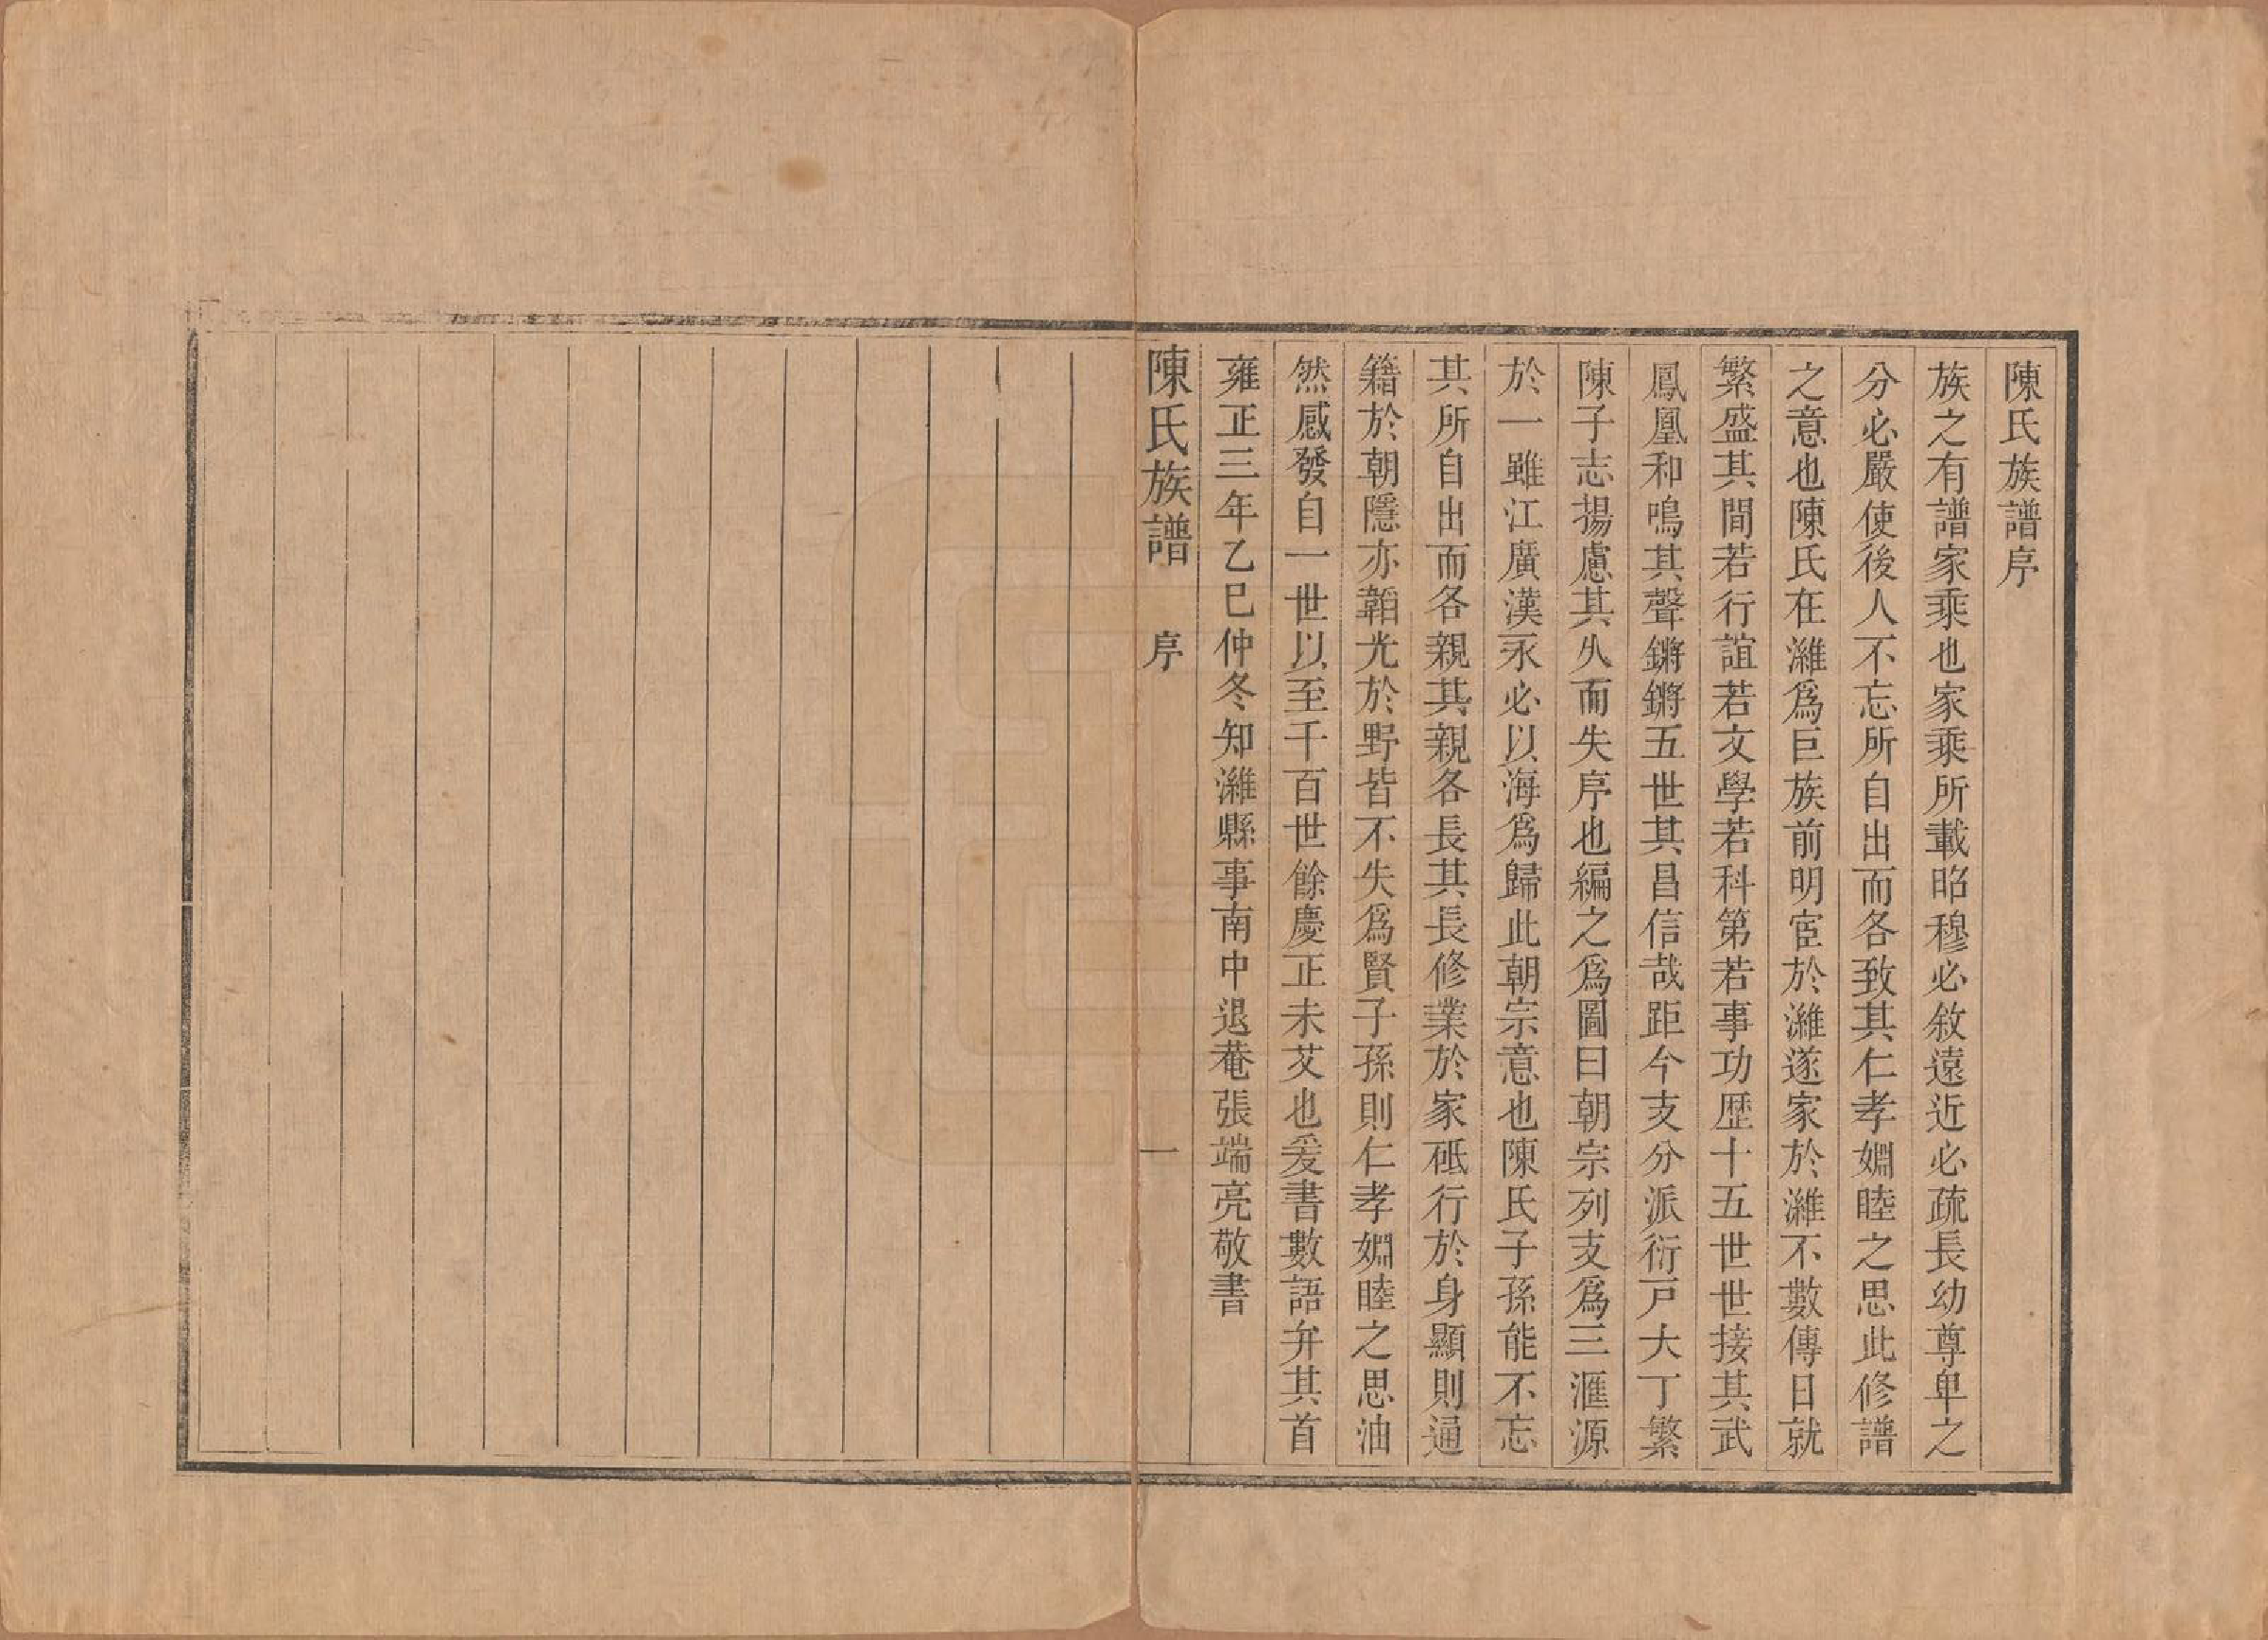 陳氏族譜序
族之有譜家乘也家乘所載昭穆必敘遠近必疏長幼尊卑之
分必嚴使後人不忘所自出而各致其仁孝婣睦之思此修譜
之意也陳氏在濰爲巨族前明宦於濰遂家於濰不數傳日就
繁盛其間若行誼若文學若科第若事功歷十五世世接其武
鳳凰和鳴其聲鏘鏘五世其昌信哉距今支分派衍戸大丁繁
陳子志揚慮其久而失序也編之爲圖曰朝宗列支爲三滙源
於一雖江廣漢永必以海爲歸此朝宗意也陳氏子孫能不忘
其所自出而各親其親各長其長修業於家砥行於身顯則通
籍於朝隱亦韜光於野皆不失爲賢子孫則仁孝婣睦之思油
然感發自一世以至千百世餘慶正未艾也爰書數語弁其首
雍正三年乙巳仲冬知濰縣事南中退菴張端亮敬書
陳氏族譜 序 一